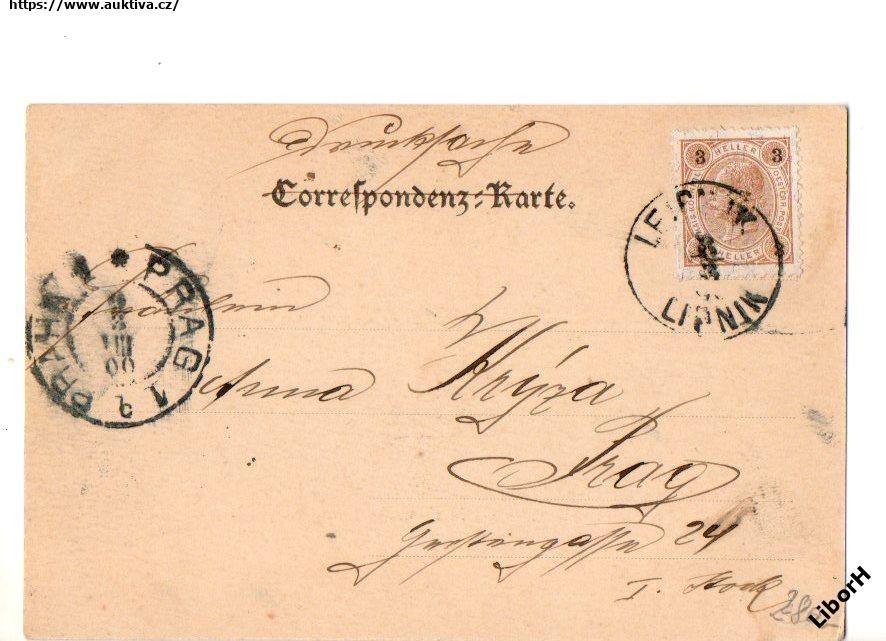 https://www.auktiva.cz/
Drucksache
Correspondenz-Karte.
3 HELLER 3
HELLER
LEIPNIK
LIPNÍK
PRAG 1
PRAHA 1
VIII
00
Fräulein
Anna Krýza
Prag
Gerstengasse 24
I. Stock
LiborH